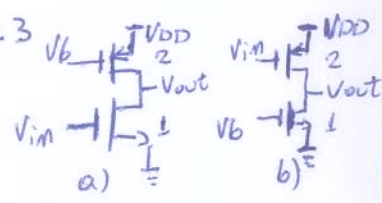 .3
Vb VDD
2
Vout
Vin 1
a)
Vin VDD
2
Vout
Vb 1
b)